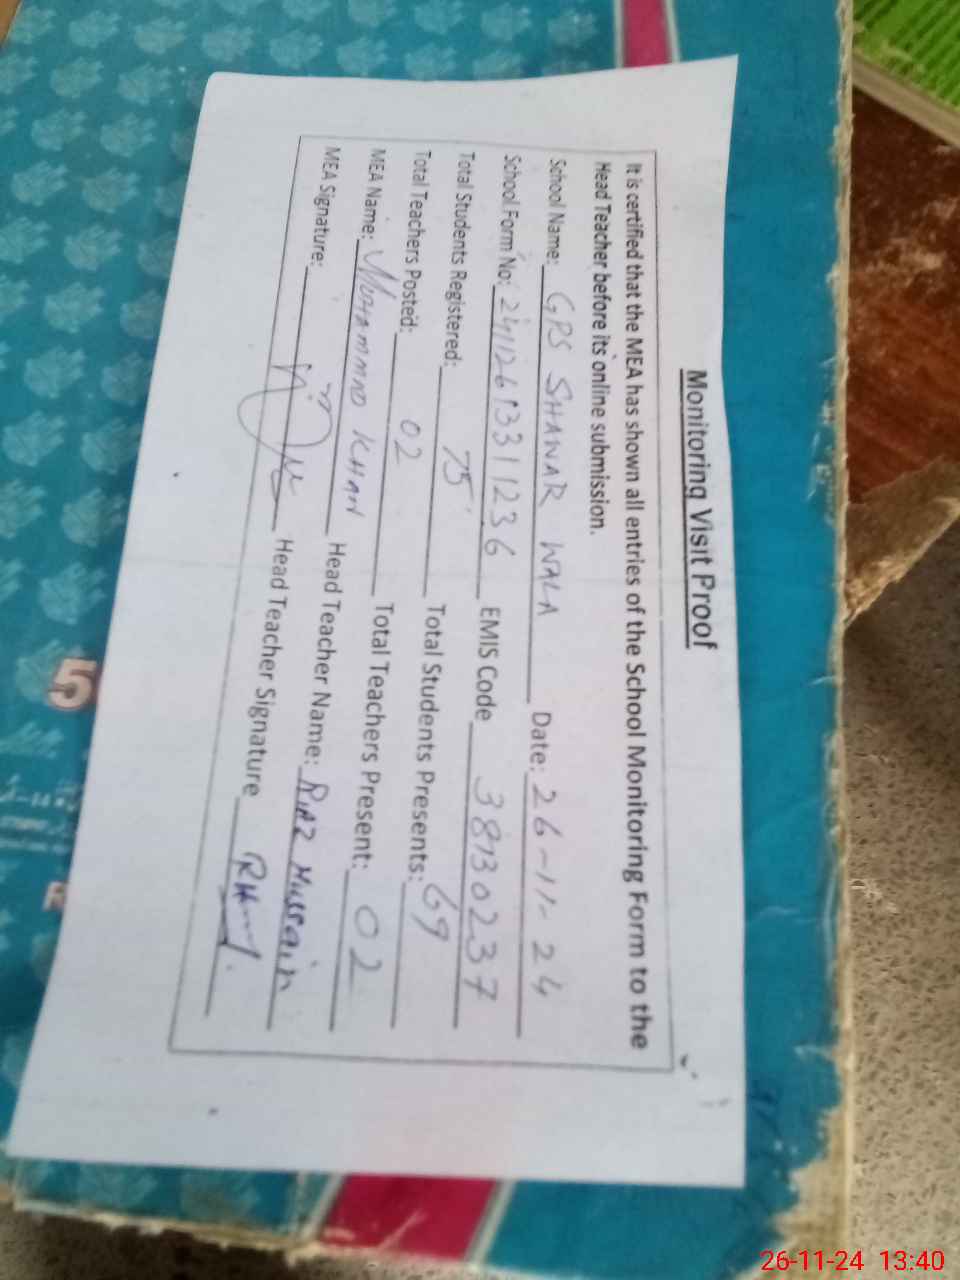 Monitoring Visit Proof
It is certified that the MEA has shown all entries of the School Monitoring Form to the
Head Teacher before its online submission.
School Name: GPS SHAWAR WALA Date: 26-11-24
School Form No: 24112613311236 EMIS Code 38130237
Total Students Registered: 75 Total Students Presents: 69
Total Teachers Posted: 02 Total Teachers Present: 02
MEA Name: MUHAMMAD KHAN Head Teacher Name: RIAZ Hussain
MEA Signature: Head Teacher Signature RH
5
26-11-24 13:40